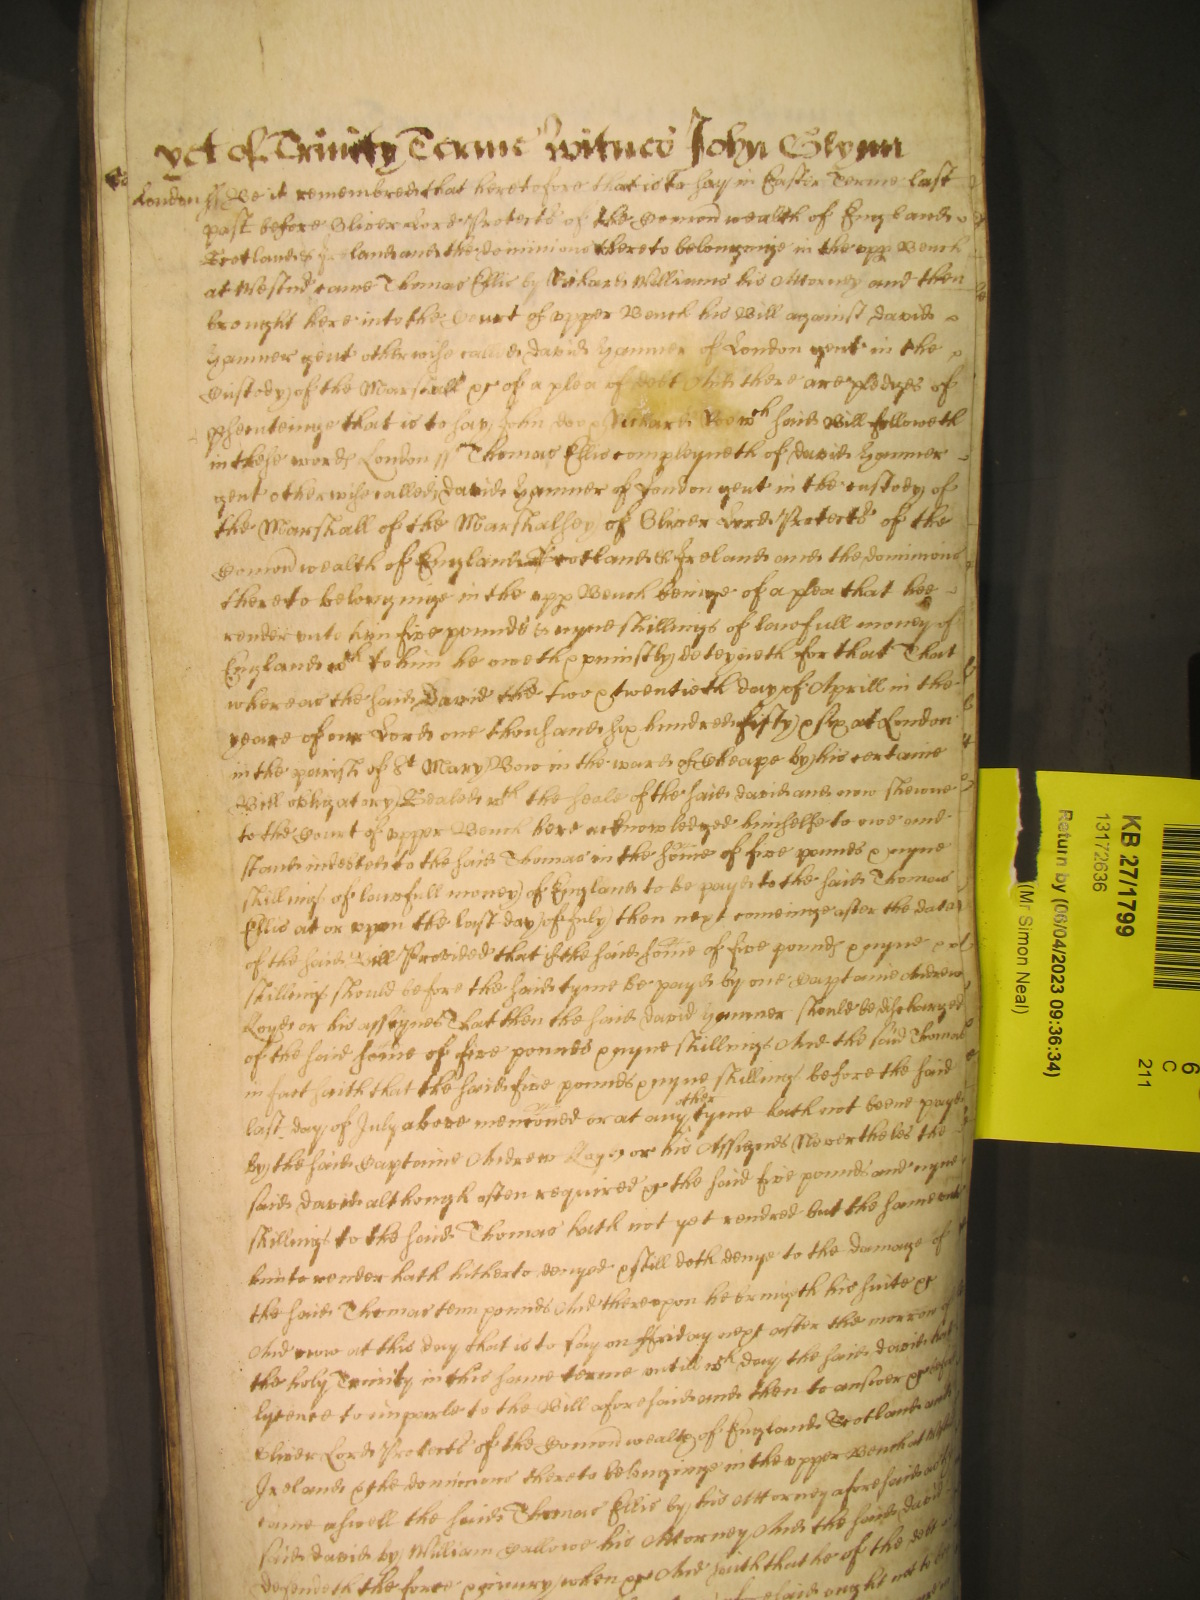 yet of Trinity Terme Witnes John Glynn
London ss Be it remembred that heretofore that is to say in Easter Terme last
past before Oliver Lord Protector of the Comonwealth of England
Scotland & Ireland and the dominions thereto belonginge in the upp Bench
at Westmr came Thomas Ellis by Richard Williams his Attorney and then
brought here into the Court of upper Bench his Bill against David
Hanmer gent otherwise called David Hanmer of London gent in the
Custody of the Marshall &c of a plea of debt And there are pledges of
psecuteinge that is to say John Doo & Richard Roo wch said Bill followeth
in these words London ss Thomas Ellis compleyneth of David Hanmer
gent otherwise called David Hanmer of London gent in the custody of
the Marshall of the Marshalsey of Oliver Lord Protector of the
Comonwealth of England Scotland & Ireland and the dominions
thereto belonginge in the upp Bench beinge of a plea that hee
render unto him five pounds & nyne shillings of lawfull money of
England wch to him he oweth & uniustly deteyneth for that That
whereas the said David the two & twentieth day of Aprill in the
yeare of our Lord one thousand six hundred fifty & six at London
in the parish of St Mary Bow in the ward of Cheape by his certaine
Bill obligatory Sealed wth the seale of the said David and now shewne
to the Court of upper Bench here acknowledged himselfe to owe and
stand indebted to the said Thomas in the some of five pounds & nyne
shillings of lawfull money of England to be payd to the said Thomas
Ellis at or upon the last day of July then next comeinge after the date
of the said Bill Provided that if the said some of five pounds & nyne
shillings should before the said tyme be payd by one Captaine Andrew
Loyd or his assignes That then the said David Hanmer should be discharged
of the said some of five pounds & nyne shillings And the said Thomas
in fact saith that the said five pounds & nyne shillings before the said
last day of July above mencioned or at any other tyme hath not beene payd
by the said Captaine Andrew Loyd or his Assignes Neverthelesse the
said David although often required &c the said five pounds and nyne
shillings to the said Thomas hath not yet rendred but the same unto
him to render hath hitherto denyed & still doth denye to the damage of
the said Thomas tenn pounds And thereupon he bringeth his suite &c
And now at this day that is to say on Friday next after the morrow of
the holy Trinity in this same terme untill wch day the said David had
lycence to imparle to the Bill aforesaid and then to answer &c before
Oliver Lord Protector of the Comonwealth of England Scotland and
Ireland & the dominions thereto belonginge in the upper Bench at
came aswell the said Thomas Ellis by his Attorney aforesaid as the
said David by William Gallowe his Attorney And the said David
defendeth the force & iniury when &c And saith that he of the debt
aforesaid ought not to be
KB 27/1799
13172636
Return by (06/04/2023 09:36:34)
(Mr Simon Neal)
6
C
211